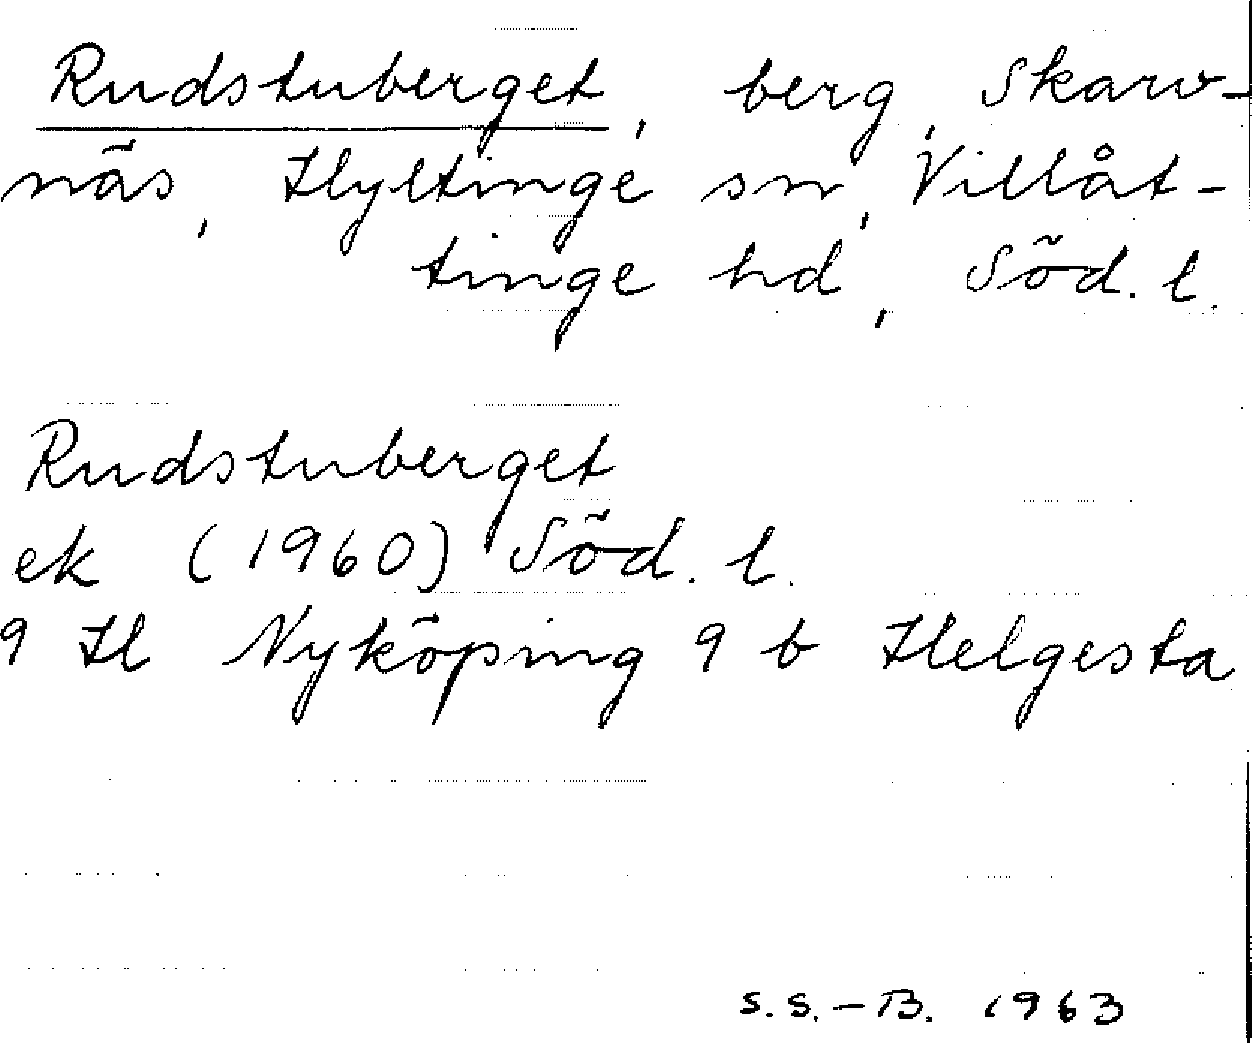 Rudstuberget, berg, Skarv-
näs, Hyltinge sn, Villåt-
tinge hd, Söd. l.
Rudstuberget
ek (1960) Söd. l.
9 H Nyköping 9 b Helgesta
S.S.-B. 1963